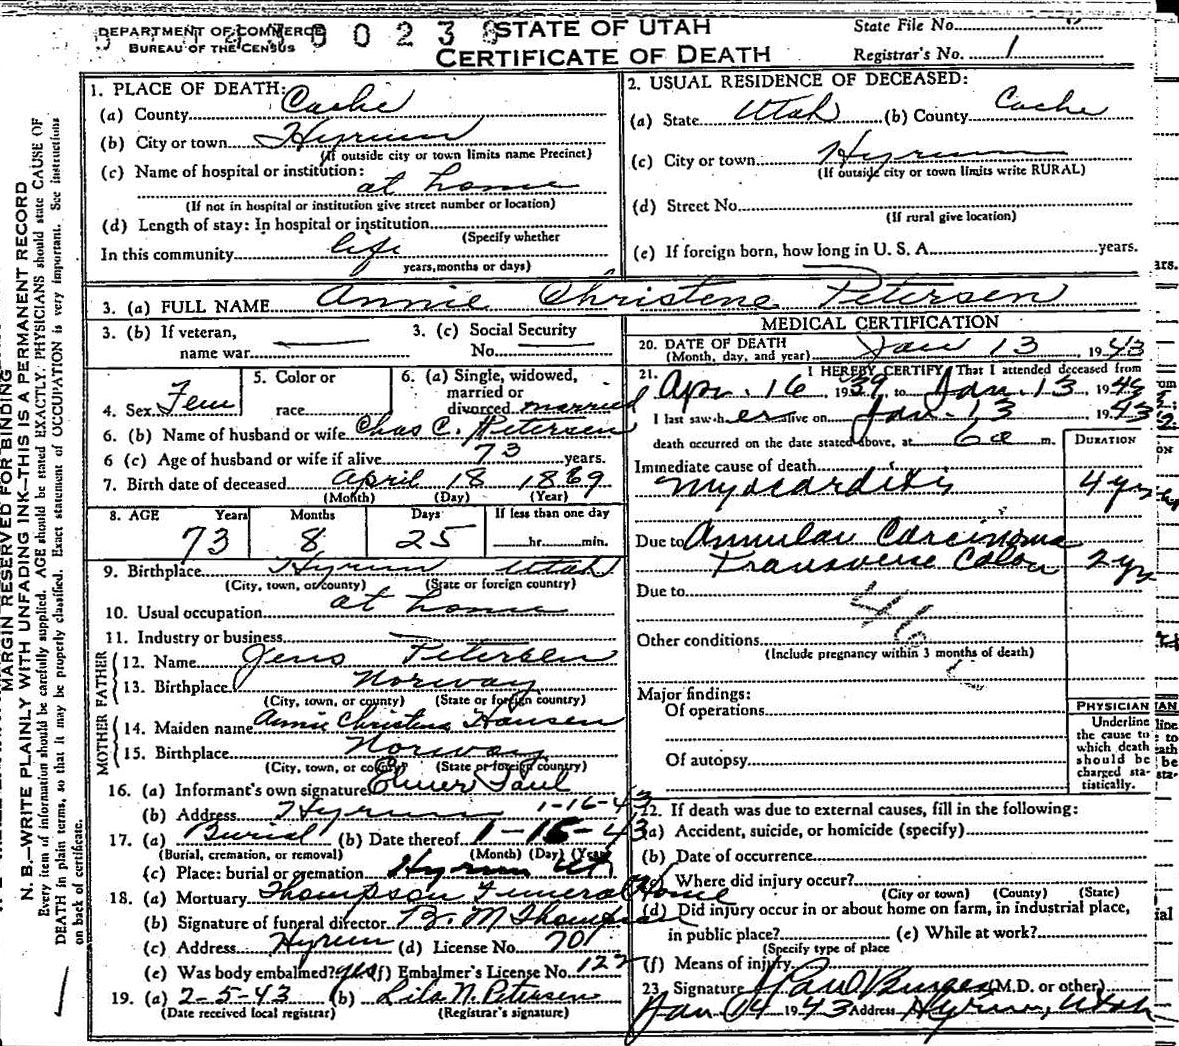 DEPARTMENT OF COMMERCE
BUREAU OF THE CENSUS
0 0 2 3
STATE OF UTAH
CERTIFICATE OF DEATH
State File No.
Registrar's No. 1
MARGIN RESERVED FOR BINDING
N. B.—WRITE PLAINLY WITH UNFADING INK—THIS IS A PERMANENT RECORD
Every item of information should be carefully supplied. AGE should be stated EXACTLY. PHYSICIANS should state CAUSE OF
DEATH in plain terms, so that it may be properly classified. Exact statement of OCCUPATION is very important. See instructions
on back of certificate.
1. PLACE OF DEATH:
(a) County Cache
(b) City or town Hyrum
(If outside city or town limits name Precinct)
(c) Name of hospital or institution:
at home
(If not in hospital or institution give street number or location)
(d) Length of stay: In hospital or institution
(Specify whether
In this community life
years, months or days)
2. USUAL RESIDENCE OF DECEASED:
(a) State Utah (b) County Cache
(c) City or town Hyrum
(If outside city or town limits write RURAL)
(d) Street No.
(If rural give location)
(e) If foreign born, how long in U. S. A. years.
3. (a) FULL NAME Annie Christene Petersen
3. (b) If veteran,
name war
3. (c) Social Security
No.
4. Sex Fem
5. Color or
race
6. (a) Single, widowed,
married or
divorced married
6. (b) Name of husband or wife Chas C. Petersen
6 (c) Age of husband or wife if alive 73 years.
7. Birth date of deceased April 18 1869
(Month) (Day) (Year)
8. AGE Years Months Days If less than one day
73 8 25 hr. min.
9. Birthplace Hyrum Utah
(City, town, or county) (State or foreign country)
10. Usual occupation at home
11. Industry or business
FATHER
12. Name Jens Petersen
13. Birthplace Norway
(City, town, or county) (State or foreign country)
MOTHER
14. Maiden name Annie Christina Hansen
15. Birthplace Norway
(City, town, or county) (State or foreign country)
16. (a) Informant's own signature Elmer Paul
(b) Address Hyrum 1-16-43
17. (a) Burial (b) Date thereof 1-15-43
(Burial, cremation, or removal) (Month) (Day) (Year)
(c) Place: burial or cremation Hyrum Ut
18. (a) Mortuary Thompson Funeral Home
(b) Signature of funeral director B. M Thompson
(c) Address Hyrum (d) License No. 701
(e) Was body embalmed? yes (f) Embalmer's License No. 122
19. (a) 2-5-43 (b) Lila N. Petersen
(Date received local registrar) (Registrar's signature)
MEDICAL CERTIFICATION
20. DATE OF DEATH
(Month, day, and year) Jan 13, 1943
21. I HEREBY CERTIFY, That I attended deceased from
Apr. 16 1939, to Jan. 13 1943
I last saw h er alive on Jan. 13 1943
death occurred on the date stated above, at 6 a m.
DURATION
Immediate cause of death
Myocarditis 4 yrs
Due to Annular Carcinoma
Transverse Colon 2 yrs
Due to
46
Other conditions
(Include pregnancy within 3 months of death)
Major findings:
Of operations
Of autopsy
PHYSICIAN
Underline
the cause to
which death
should be
charged sta-
tistically.
22. If death was due to external causes, fill in the following:
(a) Accident, suicide, or homicide (specify)
(b) Date of occurrence
(c) Where did injury occur?
(City or town) (County) (State)
(d) Did injury occur in or about home on farm, in industrial place,
in public place? (e) While at work?
(Specify type of place
(f) Means of injury
23. Signature Paul Burges (M.D. or other)
Jan 14 1943 Address Hyrum, Utah